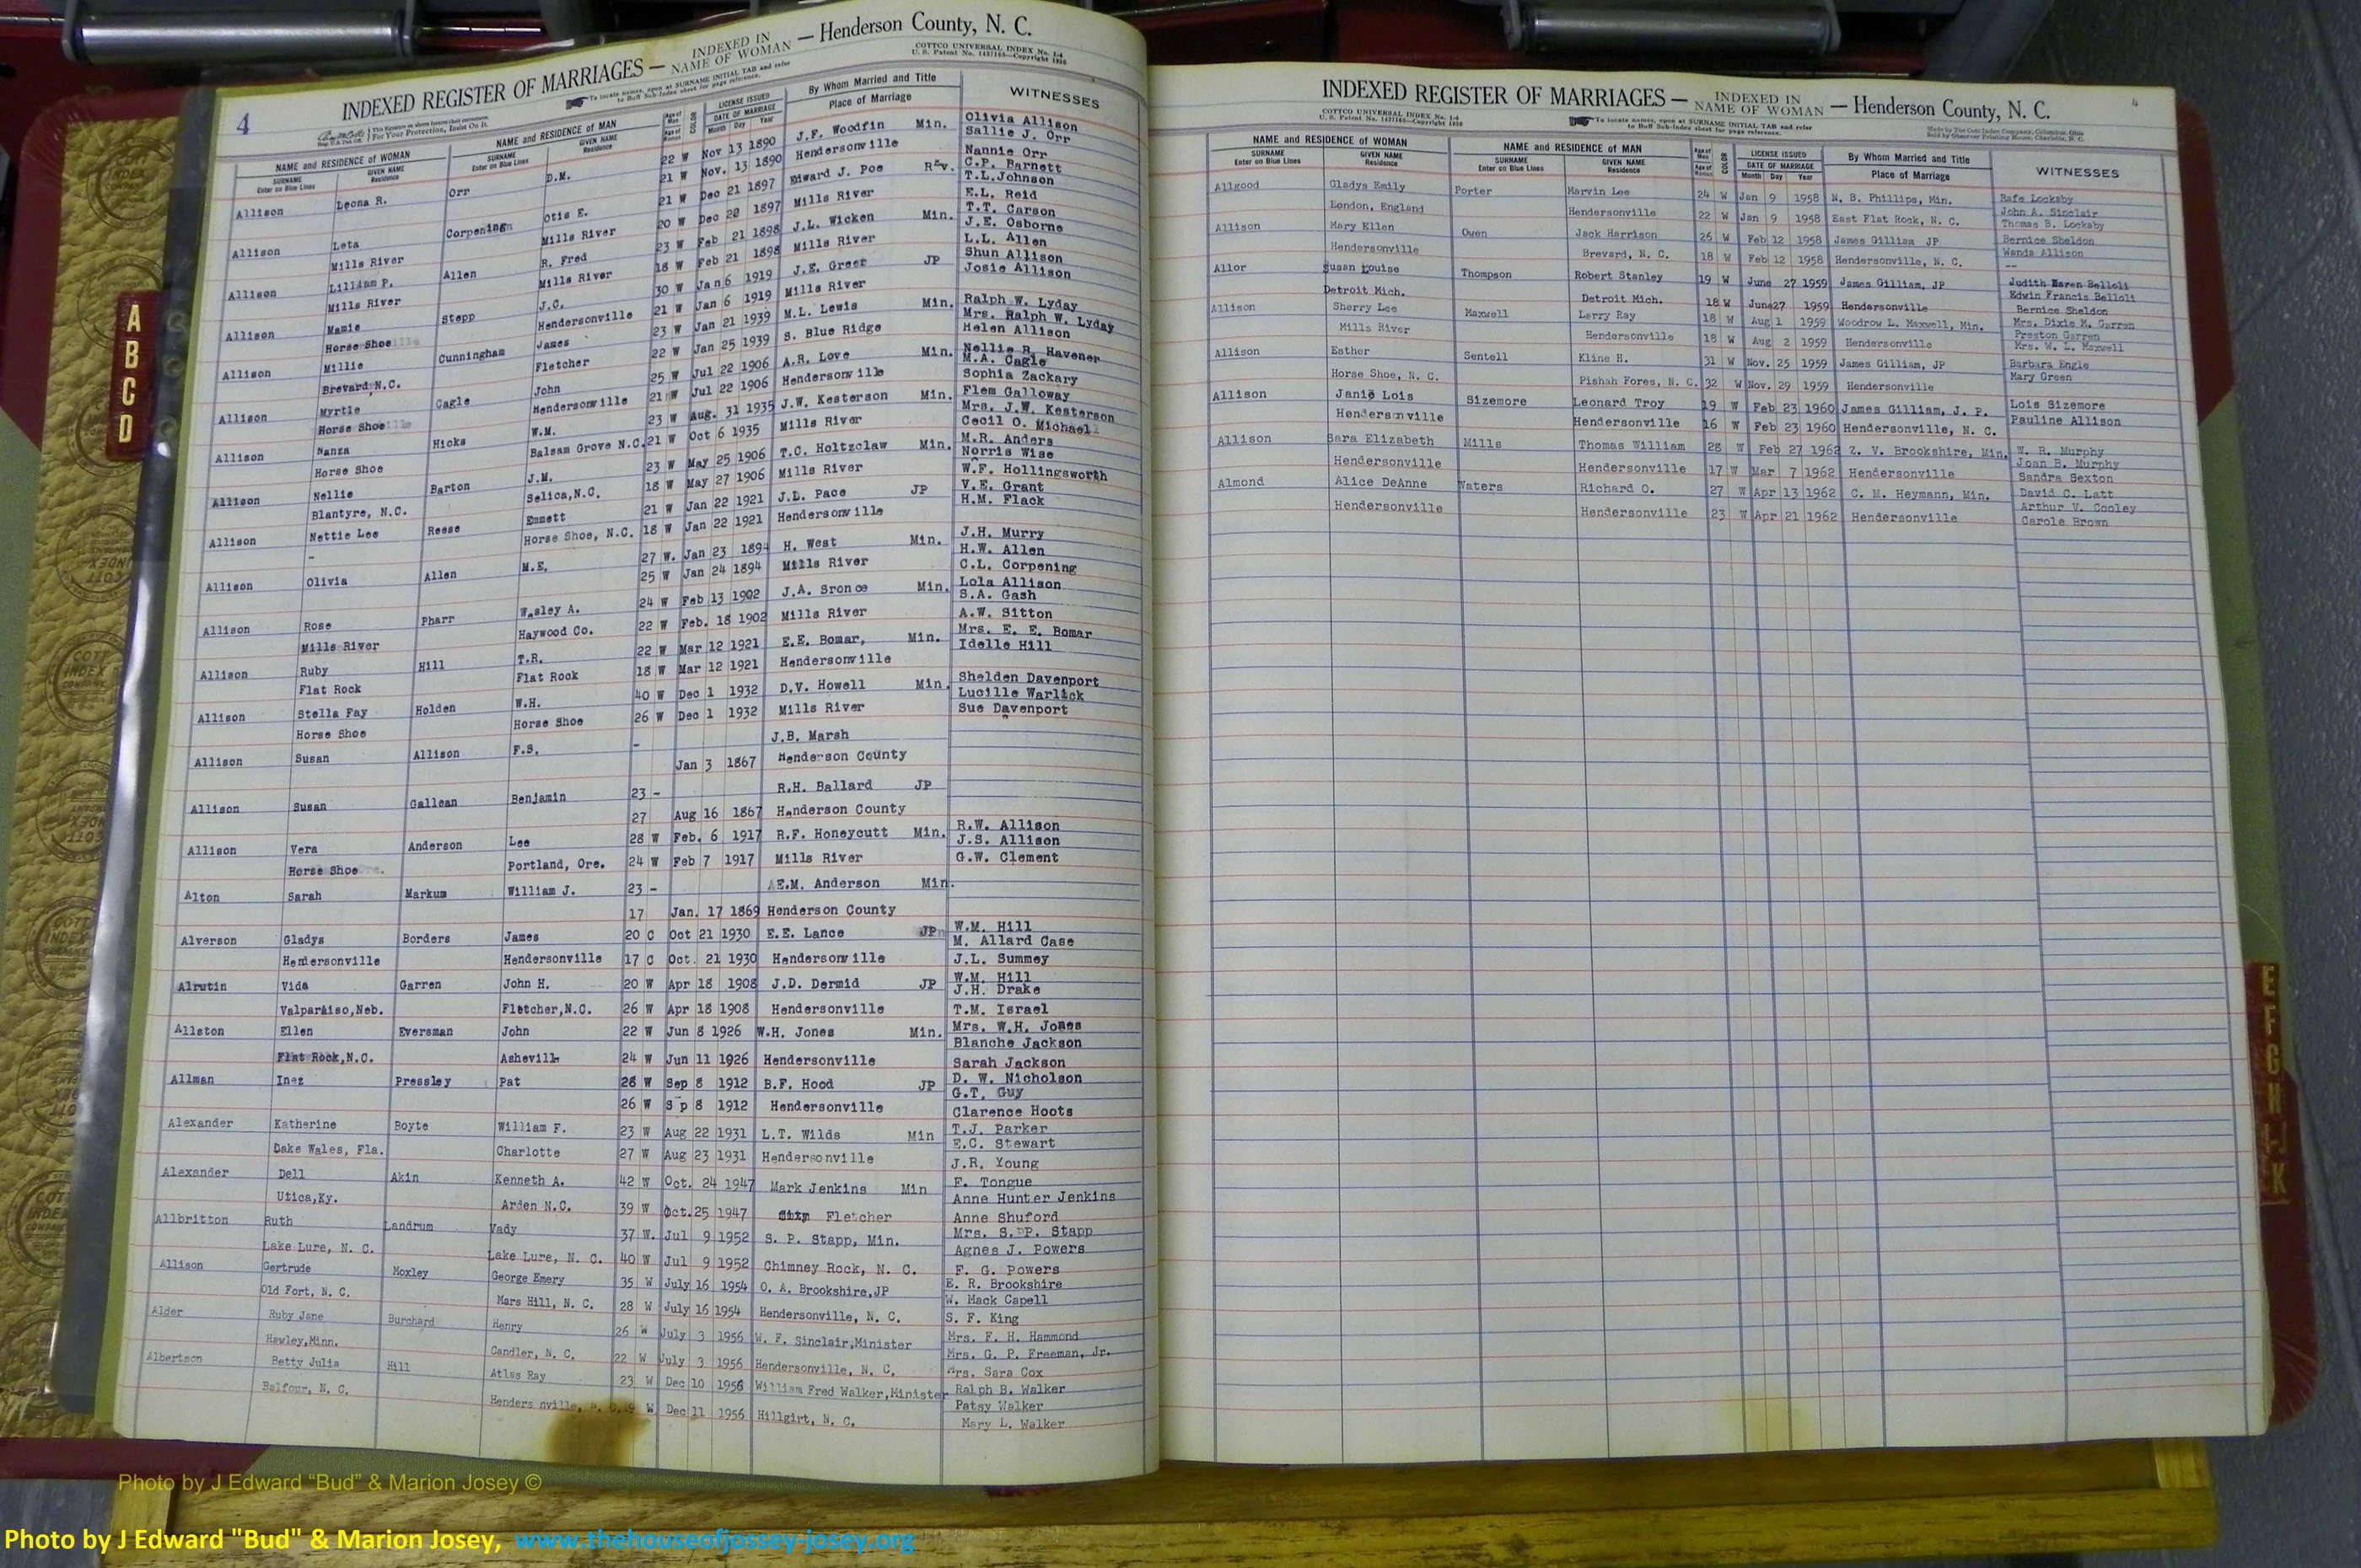 4
INDEXED REGISTER OF MARRIAGES — INDEXED IN NAME OF WOMAN — Henderson County, N. C.
To locate names, open at SURNAME INITIAL TAB and refer to Buff Sub-Index sheet for page reference.
COTTCO UNIVERSAL INDEX No. 1-4
U. S. Patent No. 1437165—Copyright 1936
For Your Protection, Insist On It.
NAME and RESIDENCE OF WOMAN NAME and RESIDENCE OF MAN LICENSE ISSUED By Whom Married and Title WITNESSES
SURNAME GIVEN NAME SURNAME GIVEN NAME COLOR DATE OF MARRIAGE Place of Marriage
Enter on Blue Lines Residence Enter on Blue Lines Residence Month Day Year
Allison Leona R. Orr D.M. 22 W Nov 13 1890 J.F. Woodfin Min. Olivia Allison
Sallie J. Orr
21 W Nov. 13 1890 Hendersonville Nannie Orr
Allison Leta Corpening Otis E. 21 W Dec 21 1897 Edward J. Poe Rev. C.P. Barnett
T.L.Johnson
Mills River Mills River 20 W Dec 20 1897 Mills River E.L. Reid
Allison Lilliam P. Allen R. Fred 23 W Feb 21 1898 J.L. Wicken Min. T.T. Carson
J.E. Osborne
Mills River Mills River 18 W Feb 21 1898 Mills River L.L. Allen
Allison Mamie Stepp J.C. 30 W Jan 6 1919 J.E. Greer JP Shun Allison
Josie Allison
Horse Shoe Hendersonville 21 W Jan 6 1919 Mills River
Allison Millie Cunningham James 23 W Jan 21 1939 M.L. Lewis Min. Ralph W. Lyday
Mrs. Ralph W. Lyday
Brevard, N.C. Fletcher 22 W Jan 25 1939 S. Blue Ridge Helen Allison
Allison Myrtle Cagle John 25 W Jul 22 1906 A.R. Love Min. Nellie R. Havener
M.A. Cagle
Horse Shoe Hendersonville 21 W Jul 22 1906 Hendersonville Sophia Zackary
Allison Nanza Hicks W.M. 23 W Aug. 31 1935 J.W. Kesterson Min. Flem Galloway
Mrs. J.W. Kesterson
Horse Shoe Balsam Grove N.C. 21 W Oct 6 1935 Mills River Cecil O. Michael
Allison Nellie Barton J.M. 23 W May 25 1906 T.C. Holtzclaw Min. M.R. Anders
Norris Wise
Blantyre, N.C. Selica,N.C. 18 W May 27 1906 Mills River W.F. Hollingsworth
Allison Nettie Lee Reese Emmett 21 W Jan 22 1921 J.D. Pace JP V.E. Grant
H.M. Flack
- Horse Shoe, N.C. 18 W Jan 22 1921 Hendersonville
Allison Olivia Allen M.E. 27 W. Jan 23 1894 H. West Min. J.H. Murry
H.W. Allen
25 W Jan 24 1894 Mills River C.L. Corpening
Allison Rose Pharr Wesley A. 24 W Feb 13 1902 J.A. Sronce Min. Lola Allison
S.A. Gash
Mills River Haywood Co. 22 W Feb. 18 1902 Mills River A.W. Sitton
Allison Ruby Hill T.R. 22 W Mar 12 1921 E.E. Bomar, Min. Mrs. E. E. Bomar
Idelle Hill
Flat Rock Flat Rock 18 W Mar 12 1921 Hendersonville
Allison Stella Fay Holden W.H. 40 W Dec 1 1932 D.V. Howell Min. Shelden Davenport
Lucille Warlick
Horse Shoe Horse Shoe 26 W Dec 1 1932 Mills River Sue Davenport
Allison Susan Allison F.S. - J.B. Marsh
Jan 3 1867 Henderson County
Allison Susan Gallean Benjamin 23 - R.H. Ballard JP
27 Aug 16 1867 Henderson County
Allison Vera Anderson Lee 28 W Feb. 6 1917 R.F. Honeycutt Min. R.W. Allison
J.S. Allison
Horse Shoe Portland, Ore. 24 W Feb 7 1917 Mills River G.W. Clement
Alton Sarah Markum William J. 23 - E.M. Anderson Min.
17 Jan. 17 1869 Henderson County
Alverson Gladys Borders James 20 C Oct 21 1930 E.E. Lance JP W.M. Hill
M. Allard Case
Hendersonville Hendersonville 17 C Oct. 21 1930 Hendersonville J.L. Summey
Alrutin Vida Garren John H. 20 W Apr 18 1908 J.D. Dermid JP W.M. Hill
J.H. Drake
Valparaiso,Neb. Fletcher,N.C. 26 W Apr 18 1908 Hendersonville T.M. Israel
Allston Ellen Eversman John 22 W Jun 8 1926 W.H. Jones Min. Mrs. W.H. Jones
Blanche Jackson
Flat Rock,N.C. Ashevill 24 W Jun 11 1926 Hendersonville Sarah Jackson
Allman Inez Pressley Pat 28 W Sep 8 1912 B.F. Hood JP D. W. Nicholson
G.T. Guy
26 W Sep 8 1912 Hendersonville Clarence Hoots
Alexander Katherine Boyte William F. 23 W Aug 22 1931 L.T. Wilds Min T.J. Parker
E.C. Stewart
Dake Wales, Fla. Charlotte 27 W Aug 23 1931 Hendersonville J.R. Young
Alexander Dell Akin Kenneth A. 42 W Oct. 24 1947 Mark Jenkins Min F. Tongue
Anne Hunter Jenkins
Utica,Ky. Arden N.C. 39 W Oct.25 1947 Fletcher Anne Shuford
Allbritton Ruth Landrum Vady 37 W. Jul 9 1952 S. P. Stapp, Min. Mrs. S. P. Stapp
Agnes J. Powers
Lake Lure, N. C. Lake Lure, N. C. 40 W Jul 9 1952 Chimney Rock, N. C. F. G. Powers
Allison Gertrude Moxley George Emery 35 W July 16 1954 O. A. Brookshire,JP E. R. Brookshire
W. Mack Capell
Old Fort, N. C. Mars Hill, N. C. 28 W July 16 1954 Hendersonville, N. C. S. F. King
Alder Ruby Jane Burchard Henry 26 W July 3 1956 W. F. Sinclair,Minister Mrs. F. H. Hammond
Mrs. G. P. Freeman, Jr.
Hawley,Minn. Candler, N. C. 22 W July 3 1956 Hendersonville, N. C. Mrs. Sara Cox
Albertson Betty Julia Hill Atlas Ray 23 W Dec 10 1956 William Fred Walker,Minister Ralph B. Walker
Patsy Walker
Balfour, N. C. Henders nville, N. C. 19 W Dec 11 1956 Hillgirt, N. C. Mary L. Walker
4
INDEXED REGISTER OF MARRIAGES — INDEXED IN NAME OF WOMAN — Henderson County, N. C.
COTTCO UNIVERSAL INDEX No. 1-4
U. S. Patent No. 1437165—Copyright 1936
To locate names, open at SURNAME INITIAL TAB and refer to Buff Sub-Index sheet for page reference.
Made by The Cott Index Company, Columbus, Ohio
Sold by Observer Printing House, Charlotte, N. C.
NAME and RESIDENCE OF WOMAN NAME and RESIDENCE OF MAN LICENSE ISSUED By Whom Married and Title WITNESSES
SURNAME GIVEN NAME SURNAME GIVEN NAME COLOR DATE OF MARRIAGE Place of Marriage
Enter on Blue Lines Residence Enter on Blue Lines Residence Month Day Year
Allgood Gladys Emily Porter Marvin Lee 24 W Jan 9 1958 N. B. Phillips, Min. Rafe Locksby
John A. Sinclair
London, England Hendersonville 22 W Jan 9 1958 East Flat Rock, N. C. Thomas B. Locksby
Allison Mary Ellen Owen Jack Harrison 26 W Feb 12 1958 James Gilliam JP Bernice Sheldon
Wanda Allison
Hendersonville Brevard, N. C. 18 W Feb 12 1958 Hendersonville, N. C. --
Allor Susan Louise Thompson Robert Stanley 19 W June 27 1959 James Gilliam, JP Judith Karen Belloli
Edwin Francis Belloli
Detroit Mich. Detroit Mich. 18 W June27 1959 Hendersonville Bernice Sheldon
Allison Sherry Lee Maxwell Larry Ray 18 W Aug 1 1959 Woodrow L. Maxwell, Min. Mrs. Dixie M. Garren
Preston Garren
Mills River Hendersonville 18 W Aug 2 1959 Hendersonville Mrs. W. L. Maxwell
Allison Esther Sentell Kline H. 31 W Nov. 25 1959 James Gilliam, JP Barbara Engle
Mary Green
Horse Shoe, N. C. Pishah Fores, N. C. 32 W Nov. 29 1959 Hendersonville
Allison Janie Lois Sizemore Leonard Troy 19 W Feb 23 1960 James Gilliam, J. P. Lois Sizemore
Pauline Allison
Hendersonville Hendersonville 16 W Feb 23 1960 Hendersonville, N. C.
Allison Sara Elizabeth Mills Thomas William 28 W Feb 27 1962 Z. V. Brookshire, Min. W. R. Murphy
Joan B. Murphy
Hendersonville Hendersonville 17 W Mar 7 1962 Hendersonville Sandra Sexton
Almond Alice DeAnne Waters Richard O. 27 W Apr 13 1962 C. M. Heymann, Min. David C. Latt
Arthur V. Cooley
Hendersonville Hendersonville 23 W Apr 21 1962 Hendersonville Carole Brown
A
B
C
D
E
F
G
H
I-J
K
Photo by J Edward “Bud” & Marion Josey ©
Photo by J Edward "Bud" & Marion Josey, www.thehouseofjossey-josey.org